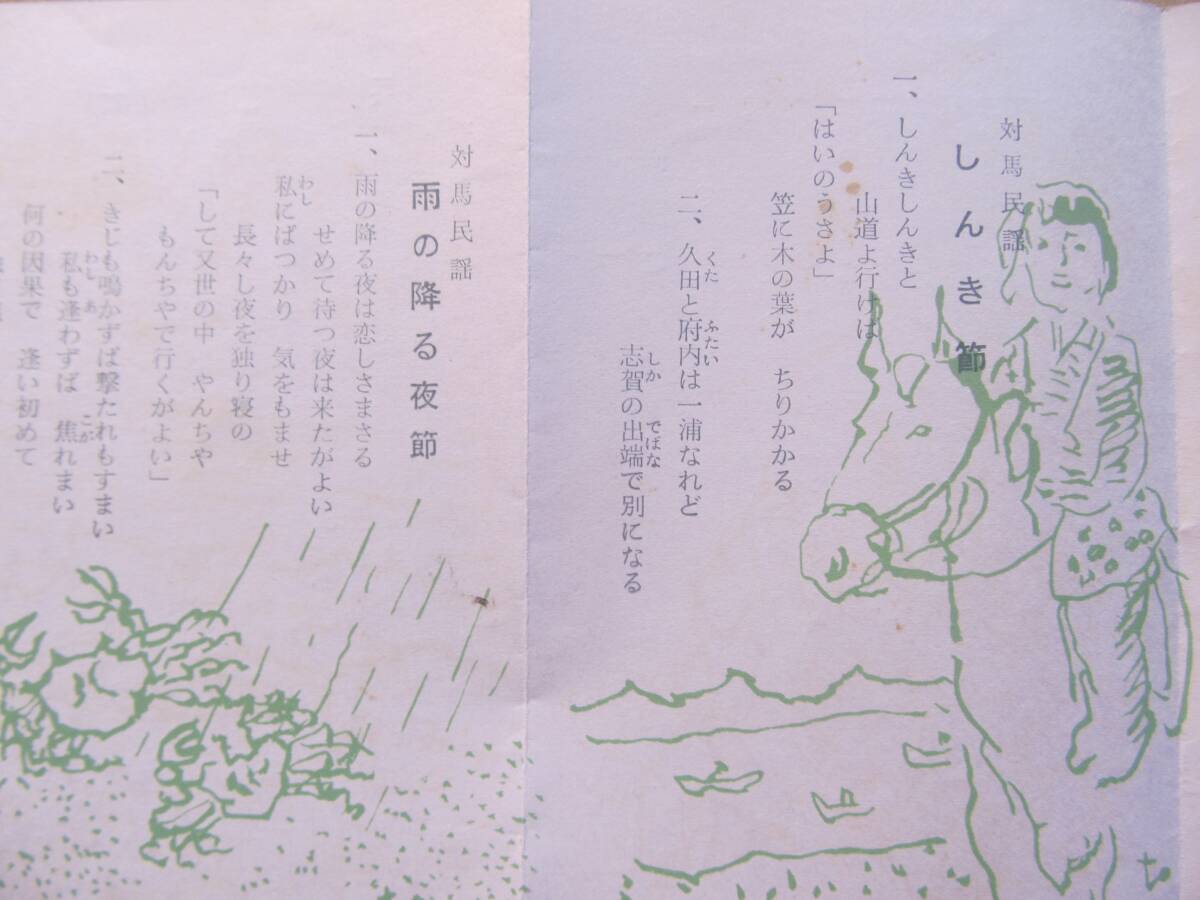 対馬民謡
しんき節
一、しんきしんきと
山道よ行けば
「はいのうさよ」
笠に木の葉が ちりかかる
二、久田と府内は一浦なれど
くた ふたい
志賀の出端で別になる
しか でばな
対馬民謡
雨の降る夜節
一、雨の降る夜は恋しさまさる
せめて待つ夜は来たがよい
私にばつかり 気をもませ
わし
長々し夜を独り寝の
「して又世の中 やんちや
もんちやで行くがよい」
二、きじも鳴かずば撃たれもすまい
私も逢わずば 焦れまい
わし あ こが
何の因果で 逢い初めて